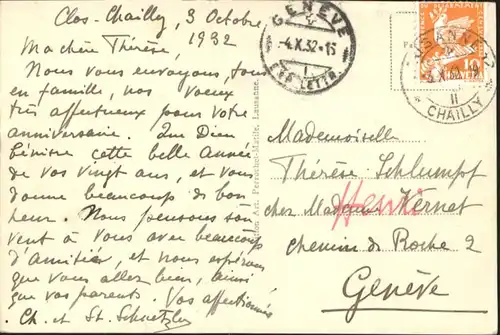 Clos-Chailly, 3 Octobre,
1932
Ma chère Thérèse,
Nous vous envoyons, tous
en famille, nos voeux
très affectueux pour votre
anniversaire. Que Dieu
bénisse cette belle année
de vos vingt ans, et vous
donne beaucoup de bon-
heur. Nous pensons sou-
vent à vous avec beaucoup
d'amitié, et nous espérons
que vous allez bien, ainsi
que vos parents. Vos affectionnés
Ch. et St. Schnetzler
GENÈVE
-4.X.32-16
1
EXP. LETTR.
LAUSANNE
X.32
II
* CHAILLY *
10
Art. Perrochet-Matile, Lausanne
Mademoiselle
Thérèse Schlumpf
chez Madame Kernet
Henri
Chemin de Roche 2
Genève